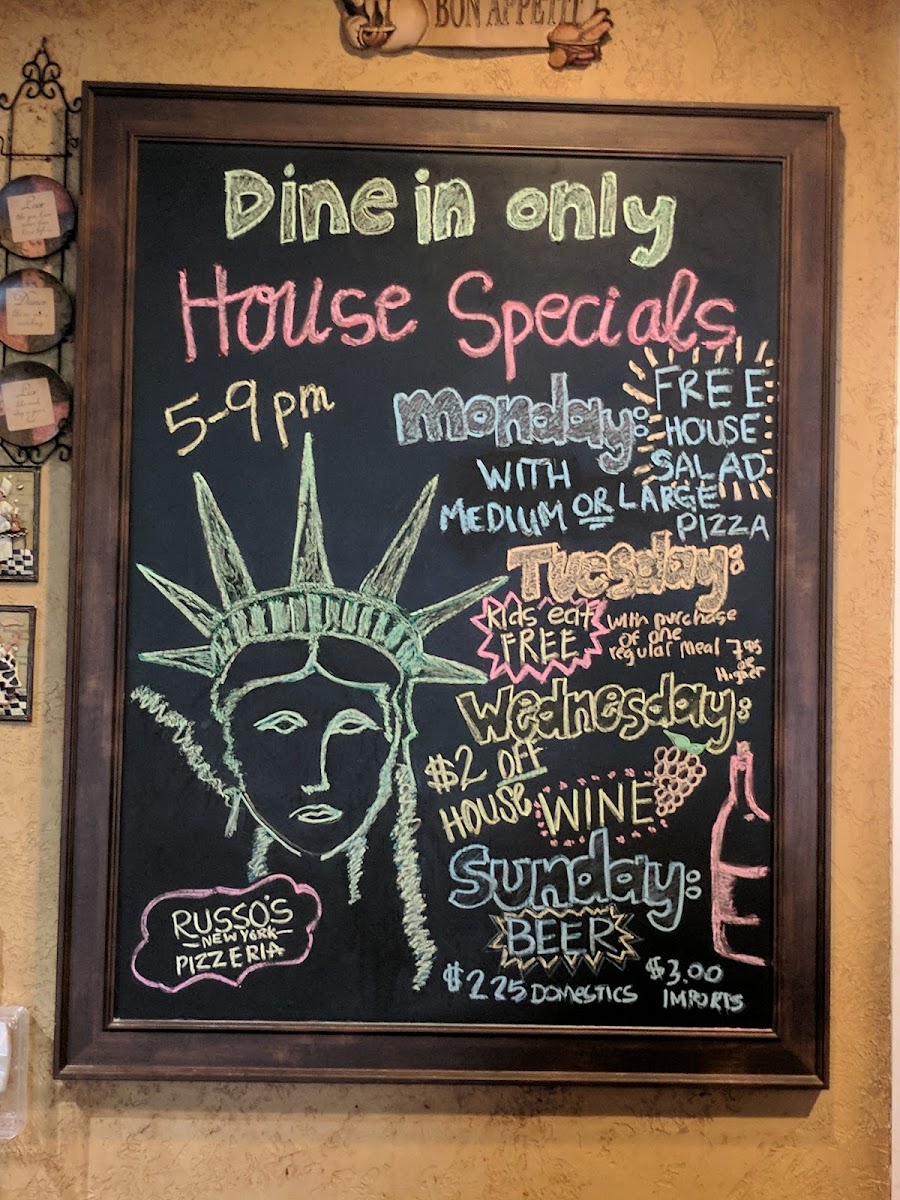 BON APPETIT
Dine in only
House Specials
5-9 pm
Monday: FREE
HOUSE
SALAD
WITH
MEDIUM OR LARGE
PIZZA
Tuesday:
Kids eat
FREE
with purchase
of one
regular meal 7.95
or
Higher
Wednesday:
$2 OFF
HOUSE WINE
Sunday:
BEER
$2.25 DOMESTICS
$3.00
IMPORTS
RUSSO'S
-NEW YORK-
PIZZERIA
Love
Dance
Live